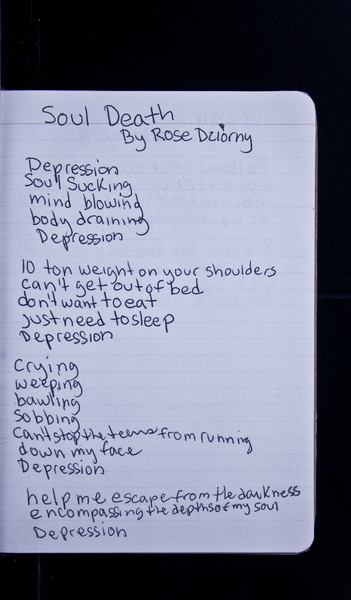 Soul Death
By Rose Dziorny
Depression
Soul Sucking
mind blowing
body draining
Depression
10 ton weight on your shoulders
can't get out of bed
don't want to eat
just need to sleep
Depression
Crying
weeping
bawling
sobbing
Can't stop the tears from running
down my face
Depression
help me escape from the darkness
encompassing the depths of my soul
Depression